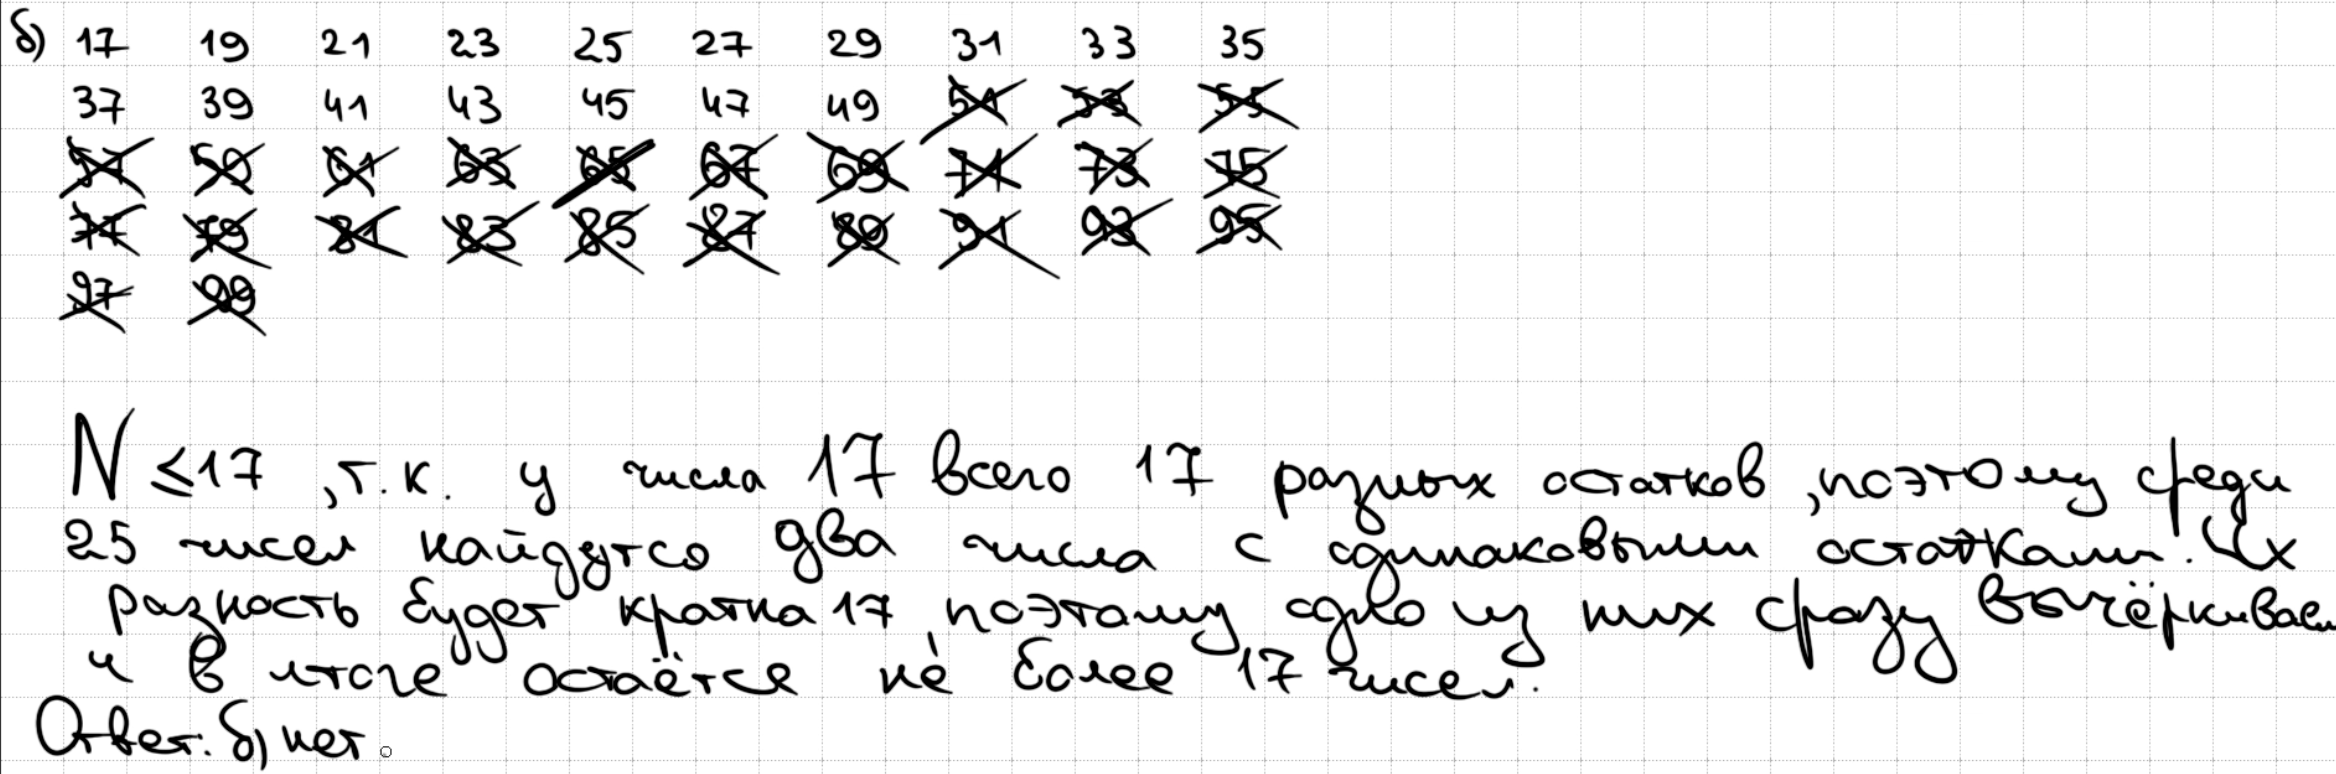 б) 17 19 21 23 25 27 29 31 33 35
37 39 41 43 45 47 49 51 53 55
57 59 61 63 65 67 69 71 73 75
77 79 81 83 85 87 89 91 93 95
97 99
N ≤ 17, т.к. у числа 17 всего 17 разных остатков, поэтому среди
25 чисел найдутся два числа с одинаковыми остатками. Их
разность будет кратна 17, поэтому одно из них сразу вычёркиваем
и в итоге остаётся не более 17 чисел.
Ответ: б) нет.